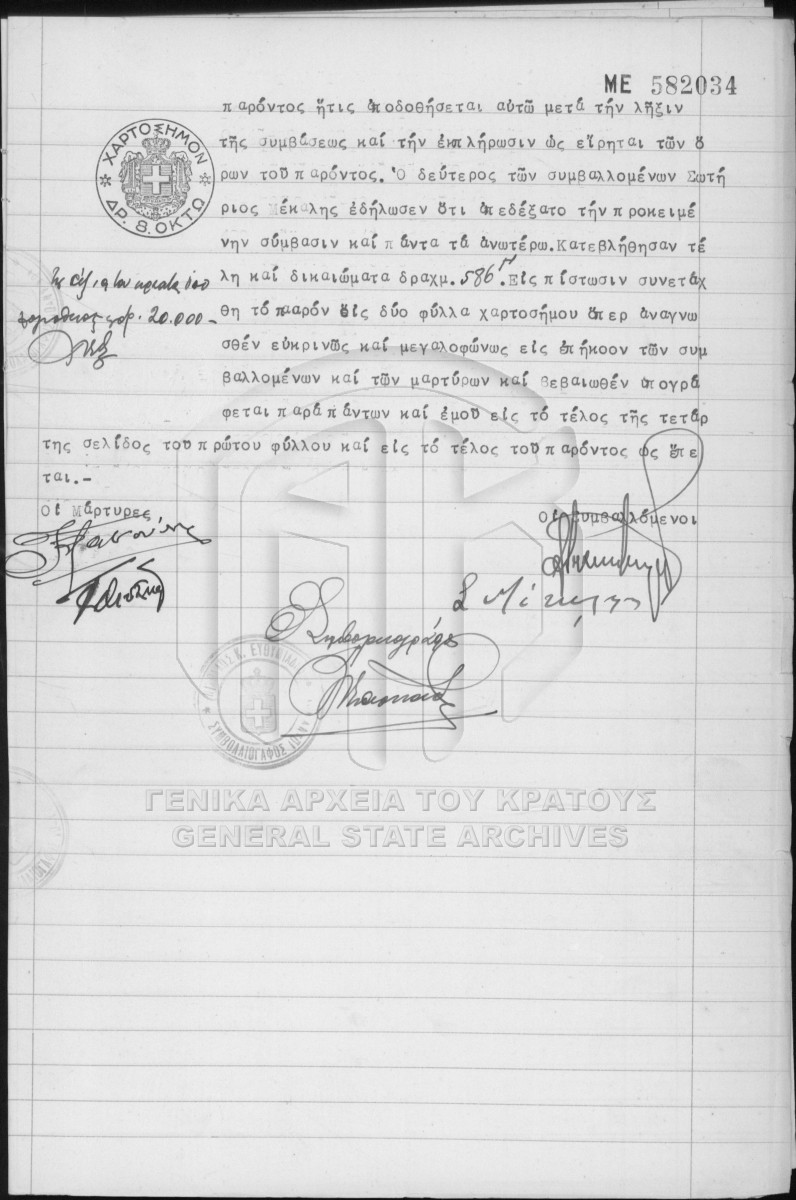 ΜΕ 582034
παρόντος ἥτις ἀποδοθήσεται αὐτῶ μετά τήν λῆξιν
τῆς συμβάσεως καί τήν ἐκπλήρωσιν ὡς εἴρηται τῶν ὅ
ρων τοῦ παρόντος. Ὁ δεύτερος τῶν συμβαλλομένων Σωτή
ριος Μέκαλης ἐδήλωσεν ὅτι ἀπεδέξατο τήν προκειμέ
νην σύμβασιν καί πάντα τά ἀνωτέρω. Κατεβλήθησαν τέ
λη καί δικαιώματα δραχμ. 586. Εἰς πίστωσιν συνετάχ
θη τό παρόν εἰς δύο φύλλα χαρτοσήμου ὅπερ ἀναγνω
σθέν εὐκρινῶς καί μεγαλοφώνως εἰς ἐπήκοον τῶν συμ
βαλλομένων καί τῶν μαρτύρων καί βεβαιωθέν ὑπογρά
φεται παρά πάντων καί ἐμοῦ εἰς τό τέλος τῆς τετάρ
της σελίδος τοῦ πρώτου φύλλου καί εἰς τό τέλος τοῦ παρόντος ὡς ἕπε
ται.-
ΧΑΡΤΟΣΗΜΟΝ
ΔΡ. 8. ΟΚΤΩ
20.000-
Οἱ Μάρτυρες
Οἱ Συμβαλλόμενοι
Ὁ Συμβολαιογράφος
ΣΥΜΒΟΛΑΙΟΓΡΑΦΟΣ
ΓΕΝΙΚΑ ΑΡΧΕΙΑ ΤΟΥ ΚΡΑΤΟΥΣ
GENERAL STATE ARCHIVES